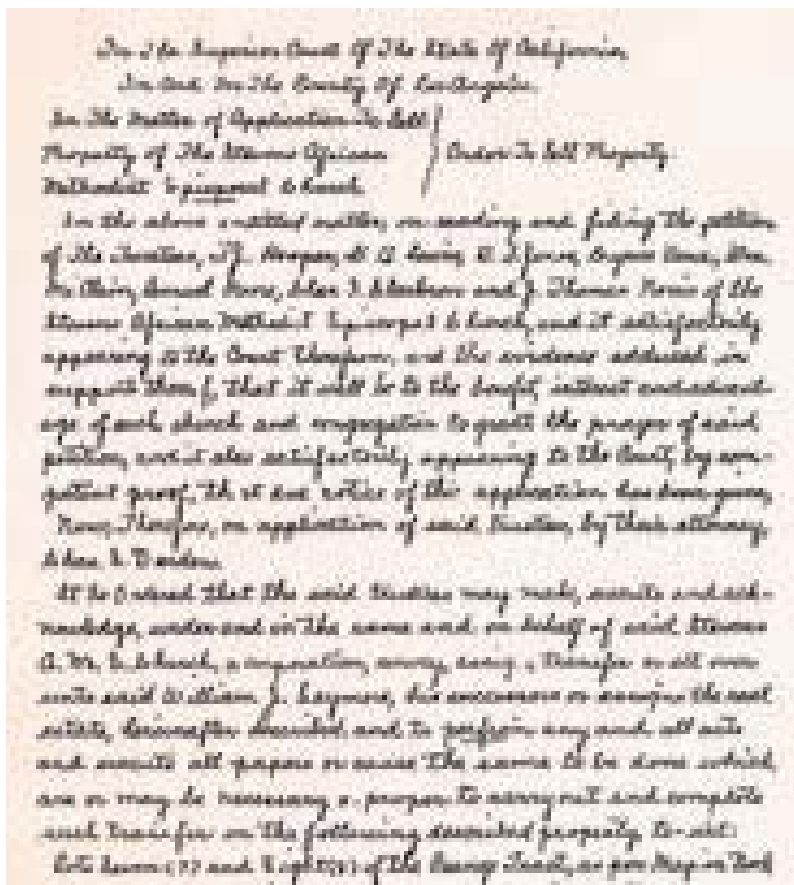 In The Superior Court Of The State Of California
In And In The County Of Los Angeles.
In The Matter of Application To Sell
Property of The Stevens African
Methodist Episcopal Church
Order To Sell Property
In the above entitled matter, on reading and filing the petition
of The Trustees, Hooper,
Samuel and J. Thomas of the
Stevens African Methodist Episcopal Church, and it satisfactorily
appearing to the Court therefrom, and the evidence adduced in
support thereof, that it will be to the benefit, interest and advant-
age of such church and congregation to grant the prayer of said
petition, and it also satisfactorily appearing to the Court, by com-
petent proof, that due notice of this application has been given,
Now, Therefore, on application of said trustees, by their attorney,
Chas. S. Darden.
It Is Ordered that the said trustees may make, execute and ack-
nowledge, under and in the name and on behalf of said Stevens
A. M. E. Church, a corporation, convey, assign, transfer or set over
unto said William J. Seymour, his successors or assigns the real
estate, hereinafter described and to perform any and all acts
and execute all papers or cause the same to be done which
are or may be necessary or proper to carry out and complete
such transfer on the following described property to-wit:
Lots Seven (7) and Eight (8) of the Tract, as per Map in Book